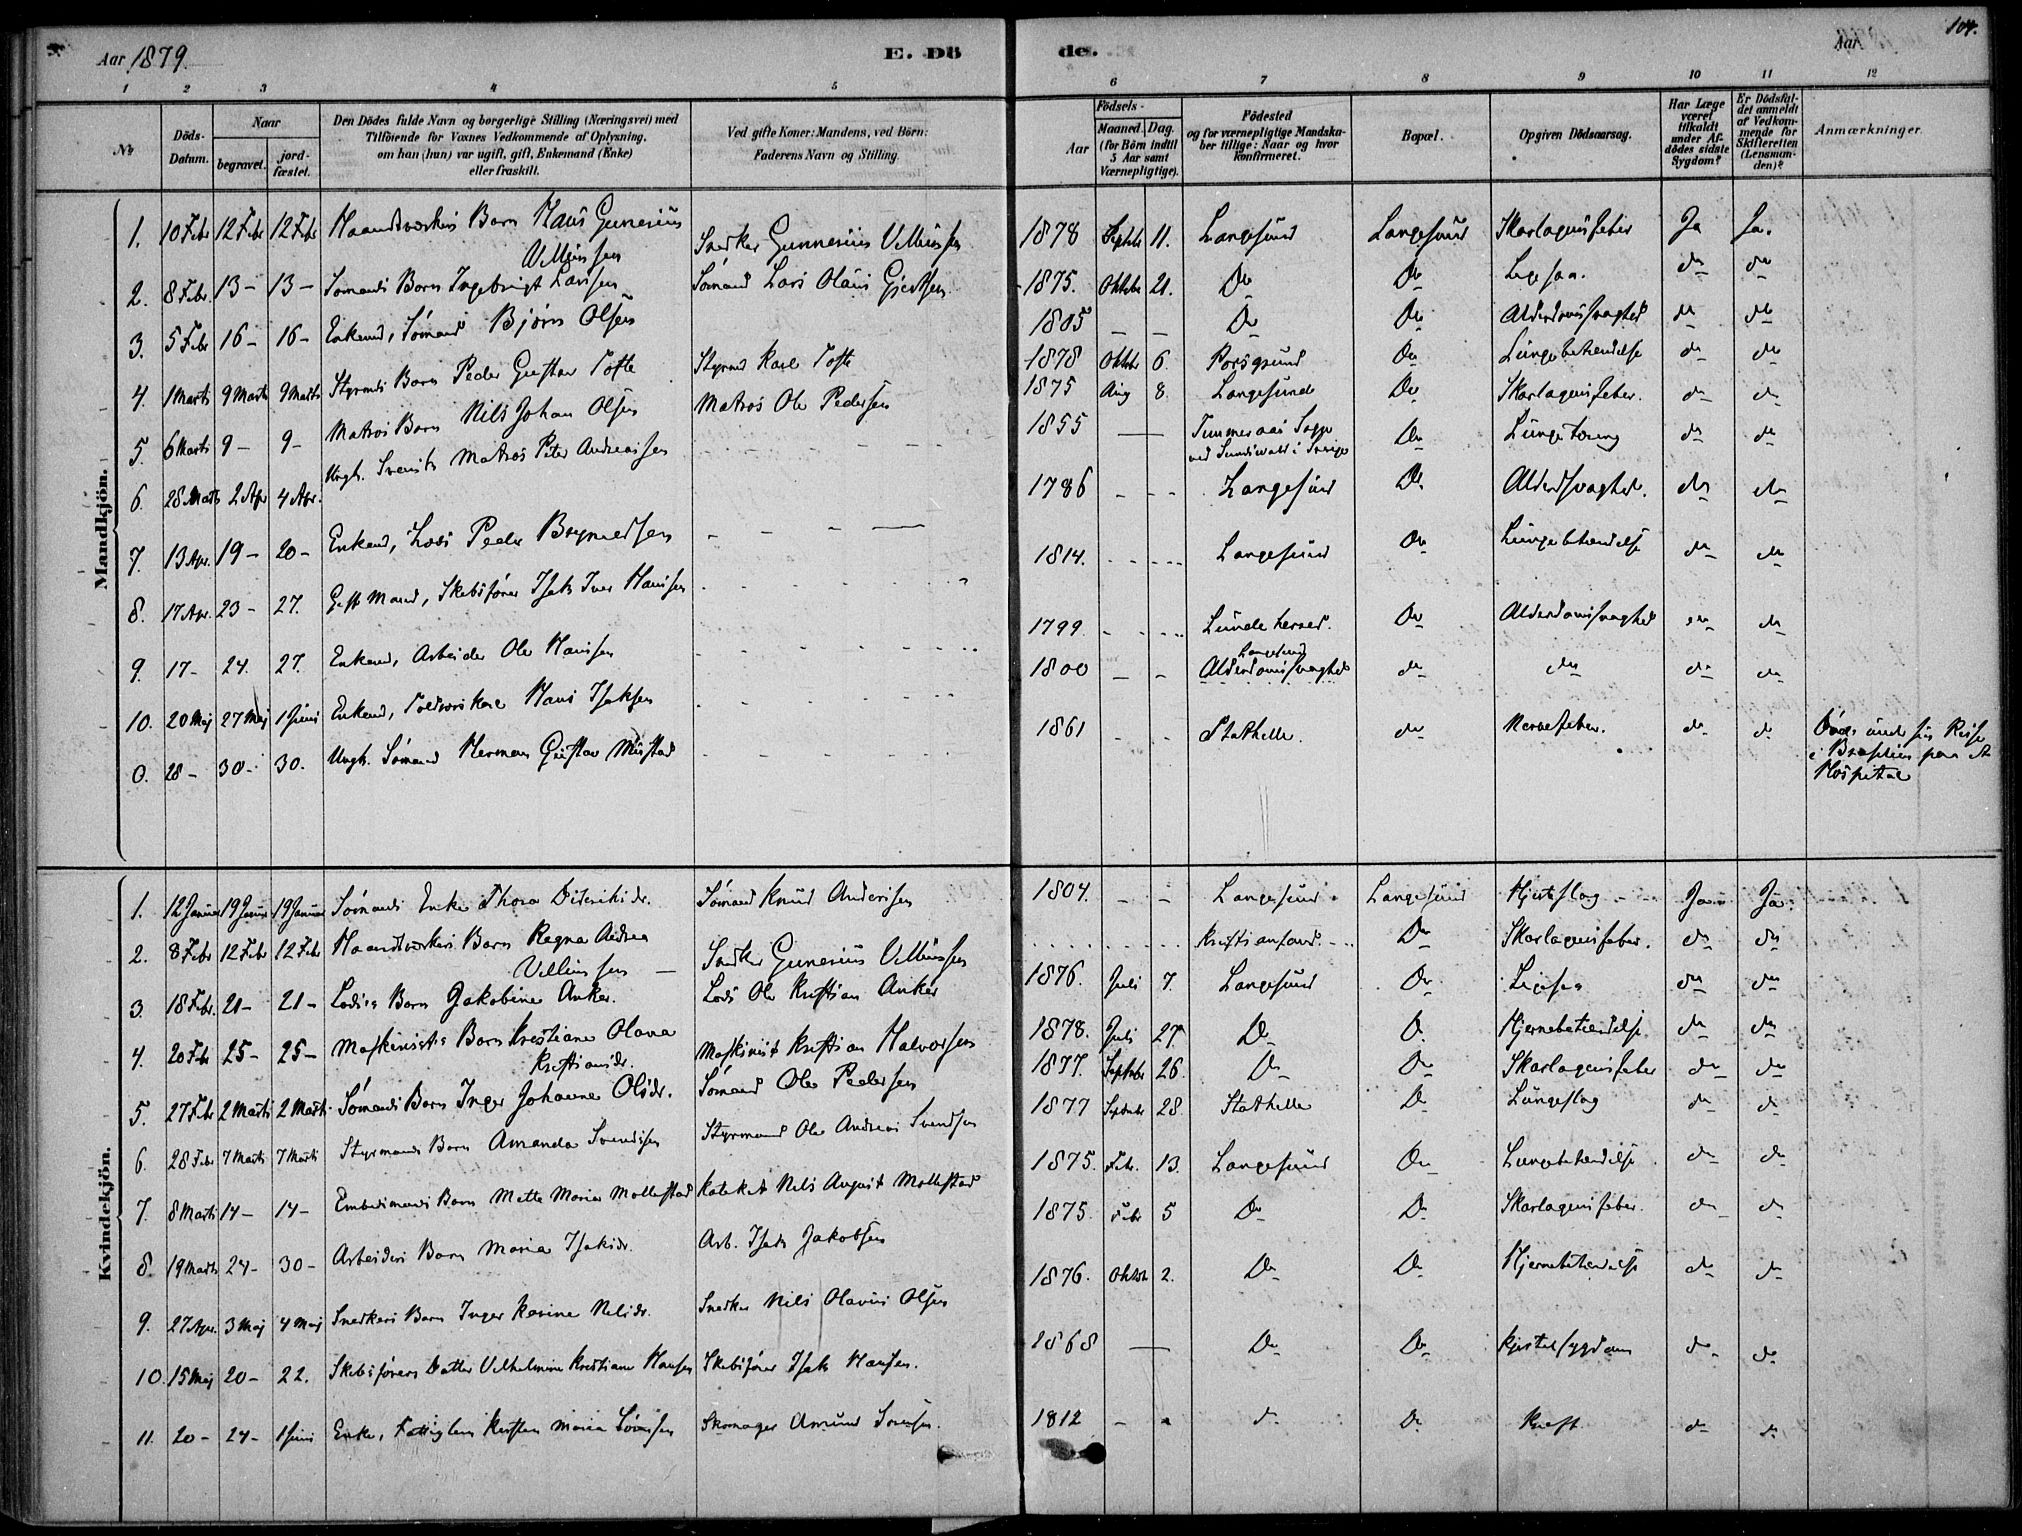 Aar 1879.
E. Dö
de.
Aar
104.
1 2 3 4 5 6 7 8 9 10 11 12
No
Döds-Datum.
Naar
begravet.
jord-fæstet.
Den Dödes fulde Navn og borgerlige Stilling (Næringsvei) med
Tilföiende for Voxnes Vedkommende af Oplysning,
om han (hun) var ugift, gift, Enkemand (Enke)
eller fraskilt.
Ved gifte Koner: Mandens, ved Börn:
Faderens Navn og Stilling.
Födsels-
Aar
Maaned. Dag.
(for Börn indtil
5 Aar samt
Værnepligtige).
Födested
og for værnepligtige Mandska-
ber tillige: Naar og hvor
konfirmeret.
Bopæl.
Opgiven Dödsaarsag.
Har Læge
været
tilkaldt
under Af-
dödes sidste
Sygdom?
Er Dödsfal-
det anmeldt
af Vedkom-
mende for
Skifteretten
(Lensman-
den)?
Anmærkninger.
Mandkjön.
1. 10 Febr 12 Febr 12 Febr Haandværkers Barn Hans Gunerius Villumsen Snedker Gunnerius Villumsen 1878 Septbr 11. Langesund Langesund Skarlagensfeber Ja Ja.
2. 8 Febr. 13 – 13 – Sømands Barn Ingebrigt Larssen Sømand Lars Olaus Gjertsen 1875. Oktbr 21. Do Do do do
3. 5 Febr 16 – 16 – Enkemd, Sømand Bjørn Olsen 1805 – – Do Do Alderdomssvaghed do do
4 1 Marts 9 Marts 9 Marts Styrmds Barn Peder Gustav Tofte Styrmd Karl Tofte 1878 Oktbr 6. Porsgrund Do Lungebetændelse do do
5. 6 Marts 9 – 9 – Matros Barn Nils Johan Olsen Matros Ole Pedersen 1875 Aug 8. Langesund Do Skarlagensfeber. do do
6. 28 Marts 2 Apr 4 Apr. Ungk. Svensk Matros Peter Andreassen 1855 – Sogn ved Sundsvald i Sverige Do Lungetæring do do
7. 13 Apr. 19 – 20 – Enkemd, Lods Peder Brynildsen 1786 – – Langesund Do Alderdsvaghed. do do
8. 17 Apr. 23 – 27. Gift Mand, Skibsfører Isak Iver Hansen 1814. Langesund Do Lungebetændelse do do
9. 17 – 24. 27. Enkemd, Arbeider Ole Hansen 1799. Lunde herred. Do Alderdomssvaghed do do
10. 20 Maj 27 Maj 1 Juni Enkemd, Hans Isaksen 1800 – – Langesund Alderdomssvaghed do do do do
0. 28 – 30 – 30. Ungk. Sømand Herman Gustav Mustad 1861 – – Stathelle. do Nervefeber. do do Døde under sin Reise i Brasilien paa et Hospital
Kvindekjön.
1. 12 Januar 19 Januar 19 Januar Sømands Enke Thora Didriksdr. Sømand Knud Andersen 1804. – – Langesund Langesund Hjerteslag Ja Ja.
2. 8 Febr 12 Febr 12 Febr Haandværkers Barn Regna Andrea Villumsen – Snedker Gunerius Villumsen Kristiansand. Do Skarlagensfeber. do do
3 18 Febr. 21 – 21 – Lodses Barn Jakobine Anker. Lods Ole Kristian Anker 1876. Juli 7. Langesund Do do do
4. 20 Febr 25 – 25 – Maskinists Barn Kristiane Olava Kristiansdr. Maskinist Kristian Halvorsen 1878. Juli 27. Do Do Hjernebetændelse do do
5. 27 Febr 2 Marts 2 Marts Sømands Barn Inger Johanne Olsdr. Sømand Ole Pedersen 1877. Septbr 26. Do Do Skarlagensfeber do do
6. 28 Febr 7 Marts 7 Marts Styrmands Barn Amanda Svendsen Styrmand Ole Andreas Svendsen 1877 Septbr 28. Stathelle Do Lungeslag do do
7. 8 Marts 14 – 14 – Embedsmands Barn Mette Marie Mollestad Kateket Nils August Mollestad 1875. Febr. 13. Langesund Do Lungebetændelse do do
8 19 Marts 24 – 30 – Arbeiders Barn Maria Isaksdr. Arb. Isak Jakobsen 1875. Febr 5 Do Do Skarlagensfeber. do do
9. 27 Apr. 3 Maj 4 Maj Snedkers Barn Inger Karine Nilsdr. Snedker Nils Olavus Olsen 1876. Oktbr 2. Do Do Hjernebetændelse do do
10. 15 Maj 20 – 22. Skibsførers Datter Vilhelmine Kristiane Hansen Skibsfører Isak Hansen. 1868 – Do Do Kjertelsygdom do do
11. 20 – 24 – 1 Juni Enke, Fattiglem Kirsten Maria Sørensen Skomager Amund Sørensen. 1812 – – do Do Kræft do do